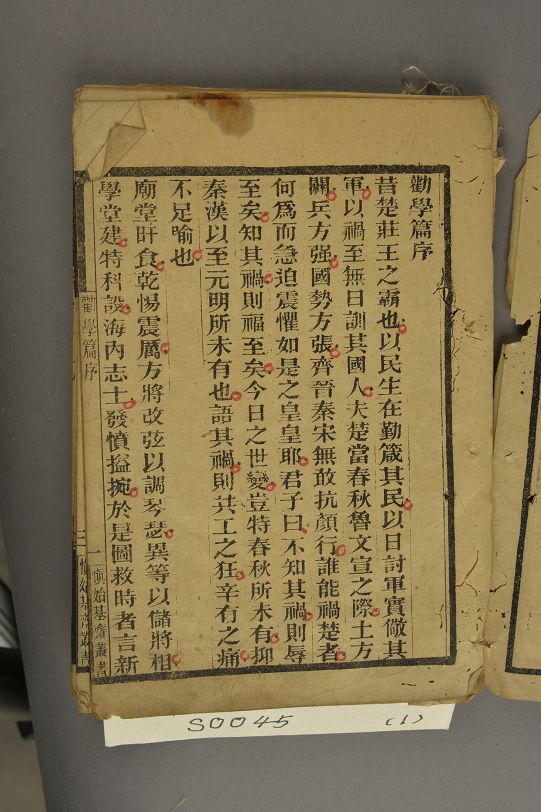 勸學篇序
昔楚莊王之霸也以民生在勤箴其民以日討軍實儆其
軍以禍至無日訓其國人夫楚當春秋魯文宣之際土方
闢兵方强國勢方張齊晉秦宋無敢抗顏行誰能禍楚者
何爲而急迫震懼如是之皇皇耶君子曰不知其禍則辱
至矣知其禍則福至矣今日之世變豈特春秋所未有抑
秦漢以至元明所未有也語其禍則共工之狂辛有之痛
不足喻也
廟堂旰食乾惕震厲方將改弦以調琴瑟異等以儲將相
學堂建特科設海内志士發憤搤捥於是圖救時者言新
勸學篇序
一
愼始基齋叢書
三
愼始基齋叢書
S0045
(1)